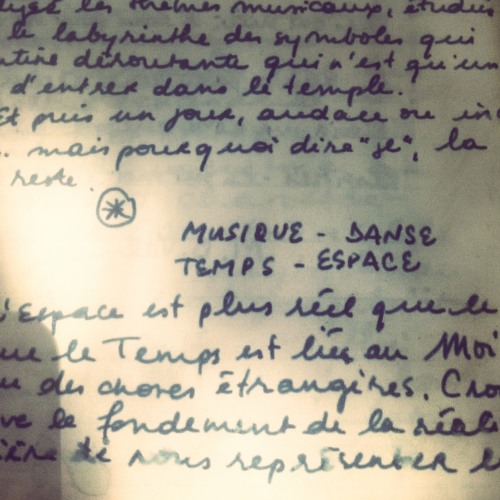 les thèmes musicaux, études
le labyrinthe des symboles qui
déroutante qui n'est qu'un
d'entrer dans le temple.
Et puis un jour, audace ou
. mais pourquoi dire "je", la
reste.
MUSIQUE - DANSE
TEMPS - ESPACE
l'Espace est plus réel que le
que le Temps est liée au Moi
des choses étrangères. Cro
le fondement de la réali
de nous représenter